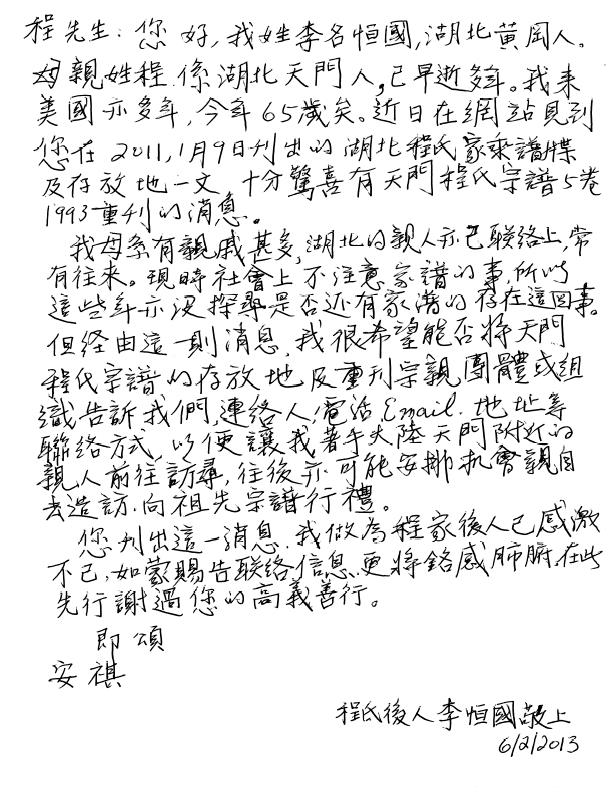 程先生：您好，我姓李名恒國，湖北黃岡人。
母親姓程係湖北天門人，已早逝多年。我來
美國亦多年，今年65歲矣。近日在網站見到
您在2011,1月9日刊出的湖北程氏家乘譜牒
及存放地一文，十分驚喜有天門程氏宗譜5卷
1993重刊的消息。
我母系有親戚甚多，湖北的親人亦已聯絡上，常
有往來。現時社會上不注意家譜的事，所以
這些年亦没探尋是否还有家譜的存在這回事。
但経由這一則消息，我很希望能否將天門
程氏宗譜的存放地及重刊宗親團體或組
織告訴我們，連絡人，電话Email.地址等
聯絡方式，以便讓我著手大陸天門附近的
親人前往訪尋，往後亦可能安排机會親自
去造訪.向祖先宗譜行禮。
您刊出這一消息.我做為程家後人已感激
不已，如蒙賜告联络信息.更將銘感肺腑.在此
先行謝過您的高義善行。
即頌
安祺
程氏後人李恒國敬上
6/2/2013